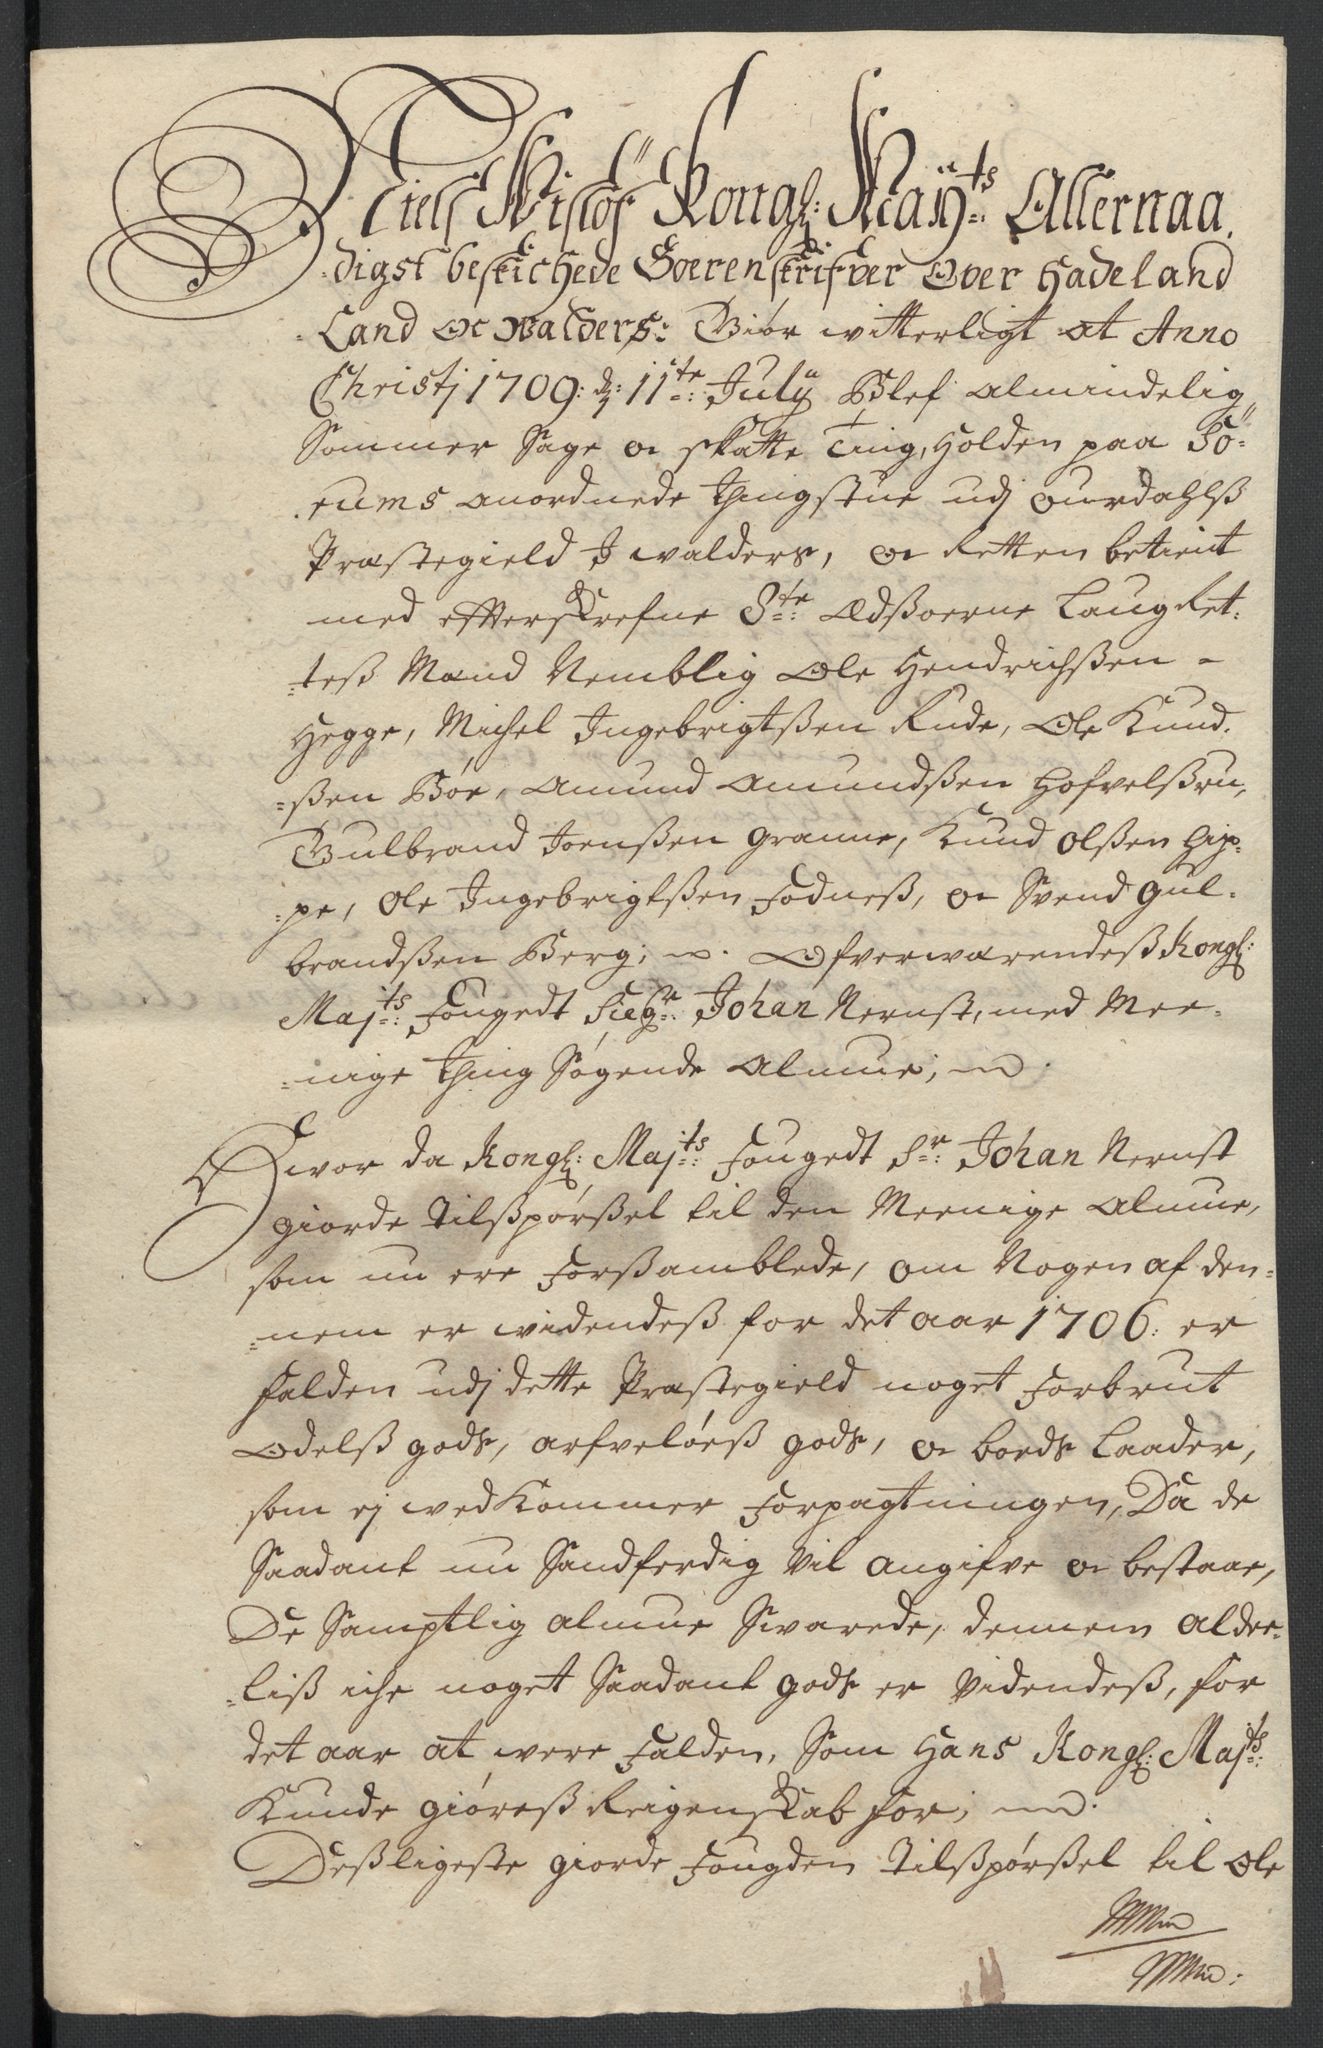 Niels Wislöf Kongl: Maÿts: Allernaa.
digst beskichede Soerenskrifver Over Hadeland
Land Oc Walders: Giør witterligt at Anno
Christj 1709: d: 11te: Julÿ Blef Almindelig
Sommer Sage oc skatte Ting, Holden paa Sö-
rums anordnede thingstue udj ourdahlß
Præstegield J walders, oc Retten betient
med efterskrefne 8te: Ædßoerne LaugRet-
teß Mænd Nemblig Ole Hendrichßen
Hegge, Michel Ingebrigtßen Rude, Ole Knud-
ßen Böe, Amund Amundßen Hofvelßru,
Gulbrand Joenßen Granne, Knud Olßen Hip-
pe, Ole Ingebrigtßen Fodneß, oc Svend Gul-
brandßen Berg; Ofverwærendeß Kongl:
Majts: Fougedt Sigr: Johan Nernst, med Mee-
nige thing Søgende Almue;
Hvor da Kongl: Majts: Fougedt Sr: Johan Nernst
giorde Tilßpørßel til den Meenige Almue,
som nu ere Forßamblede, om Nogen af den-
nem er widendeß for det aar 1706: er
falden udj dette Præstegield noget Forbrut
Odelß gods, arfvelöeß gods, oc boeds Laader,
som ej wedkommer Forpagtningen, Da de
Saadant nu Sandferdig vil angifve oc bestaae,
De Samptlig almue Swarede, dennem alder-
liß iche noget Saadant gods er videndeß, for
det aar at were Falden, Som Hans Kongl: Majts:
Kunde giøreß Reigenskab for;
Deßligeste giorde Fougden Tilßpørßel til Ole